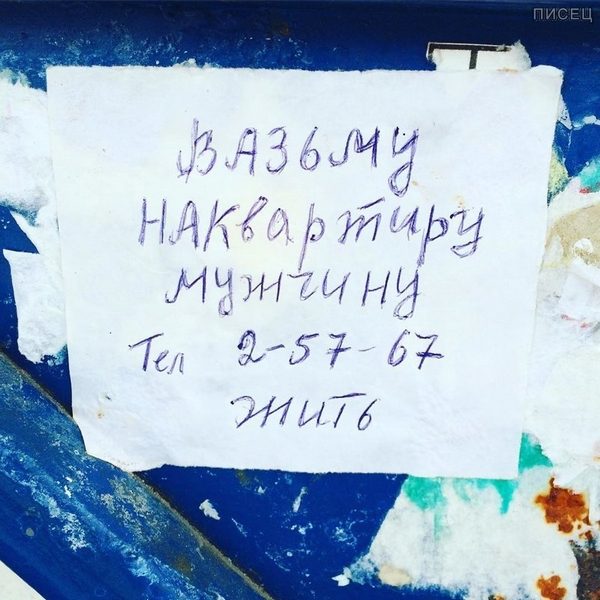 ПИСЕЦ
Т
ВАЗЬМУ
НАКвартиру
мужчину
Тел 2-57-67
жить